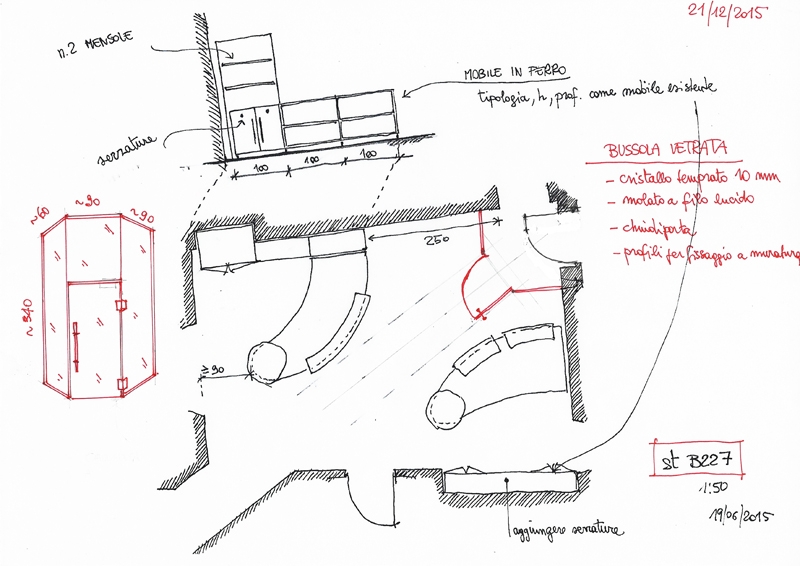 21/12/2015
n.2 MENSOLE
MOBILE IN FERRO
tipologia, h, prof. come mobile esistente
serrature
100 100 100
BUSSOLA VETRATA
- cristallo temprato 10 mm
- molato a filo lucido
- chiudiporta
- profili per fissaggio a muratura
~60 ~90 ~90
250
~340
≥90
st B227
1:50
19/06/2015
aggiungere serrature